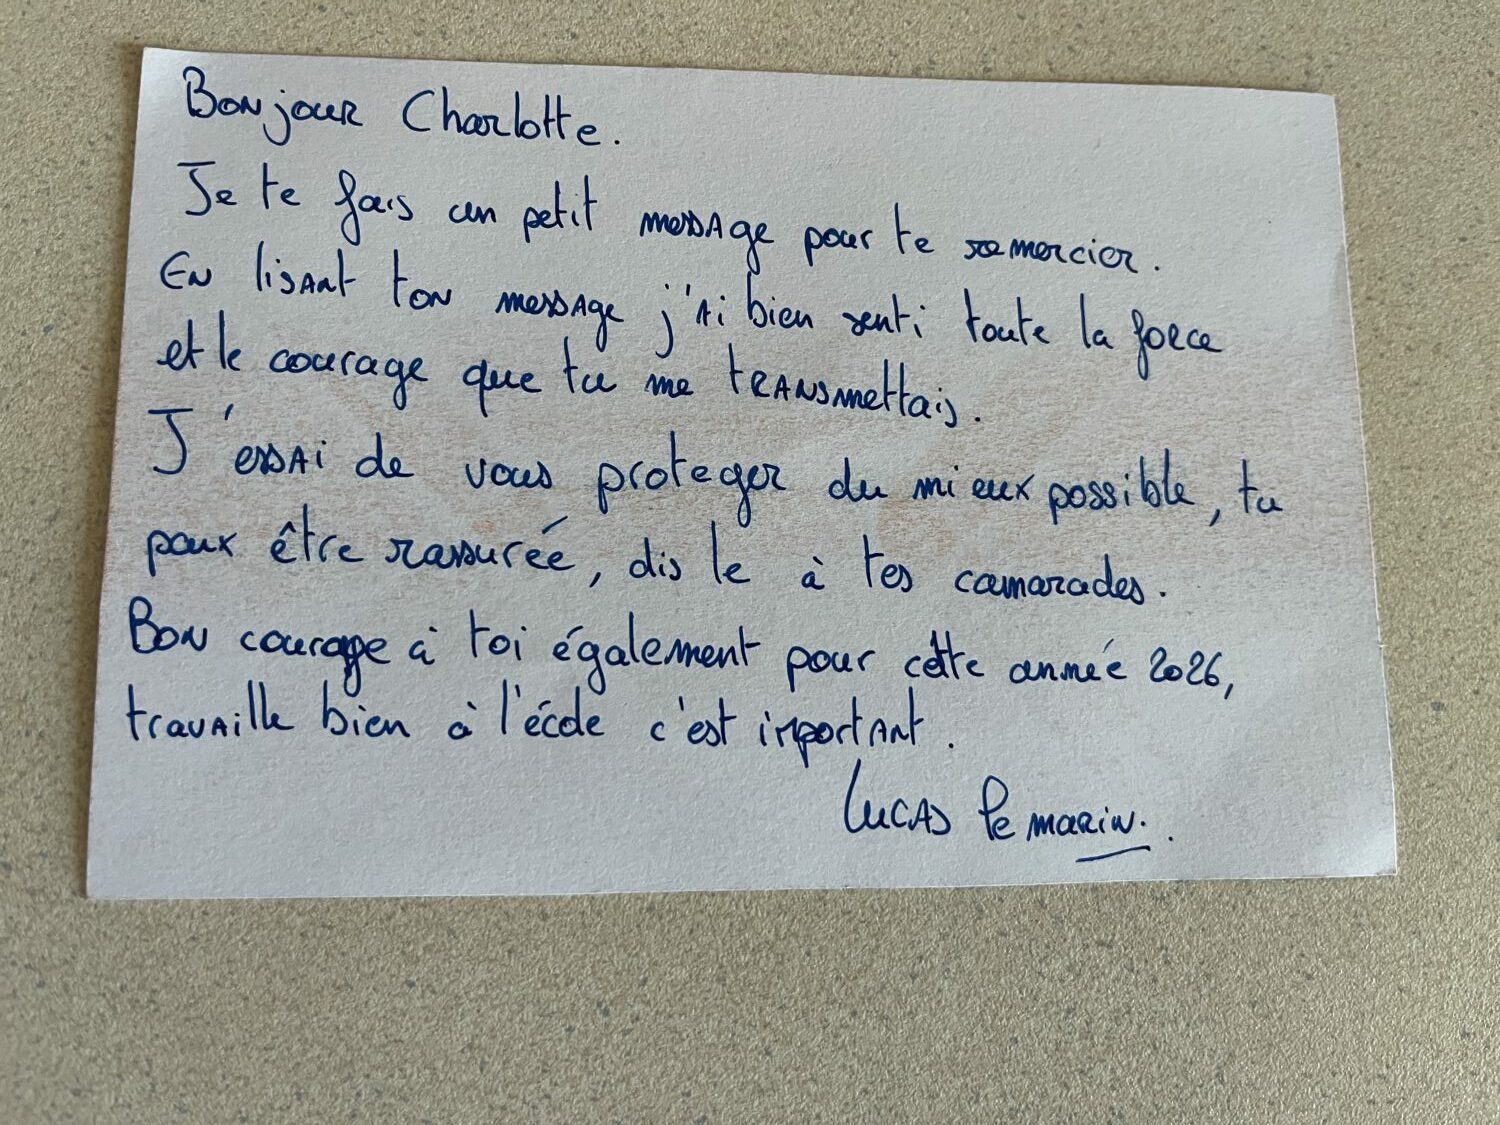 Bonjour Charlotte.
Je te fais un petit message pour te remercier.
En lisant ton message j'ai bien senti toute la force
et le courage que tu me transmettais.
J'essai de vous proteger du mieux possible, tu
peux être rassurée, dis le à tes camarades.
Bon courage à toi également pour cette année 2026,
travaille bien à l'école c'est important.
Lucas le marin.